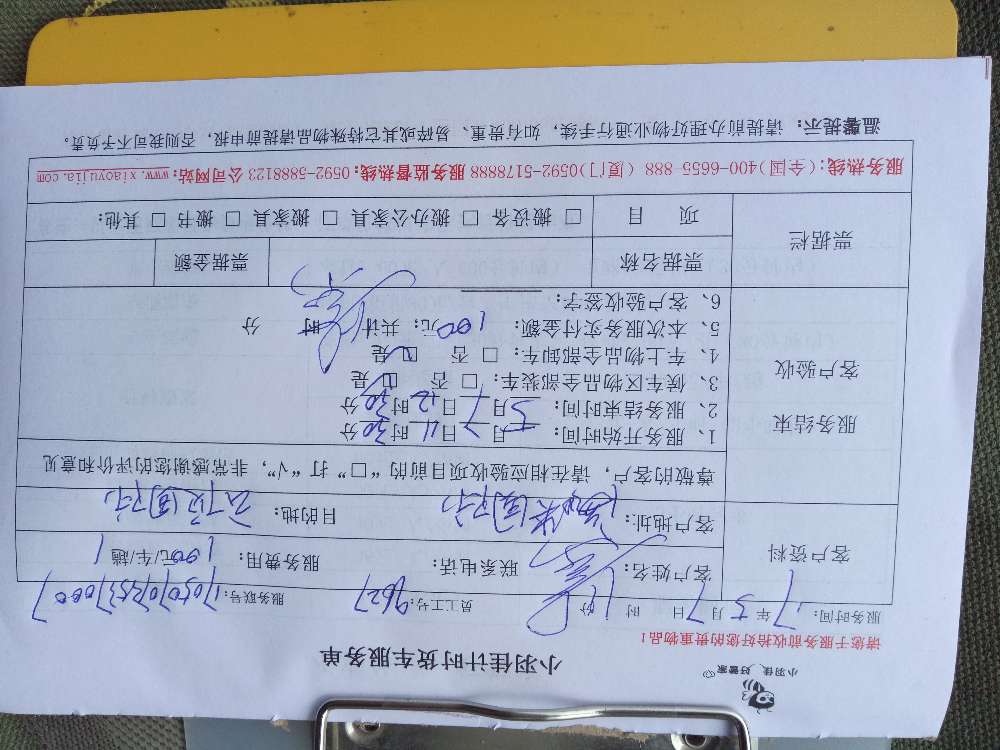 小羽佳 好管家
小羽佳计时货车服务单
请您于服务前收拾好您的贵重物品！
服务时间： 17 年 5 月 7 日 时 分 员工工号： 9627 服务联号：
客户资料 客户姓名： 联系电话： 服务费用： 100元/车/趟
客户地址： 目的地：
尊敬的客户，请在相应验收项目前的“□”打“√”，非常感谢您的评价和意见
服务结束 客户验收
1、服务开始时间： 5 月 7 日 11 时 30 分
2、服务结束时间： 5 月 7 日 12 时 30 分
3、候车区物品全部装： □ 否 □ 是
4、车上物品全部卸： □ 否 □ 是
5、本次服务实付金额： 100 元； 共计 时 分
6、客户验收签字：
票据栏 票据名称 票据金额
项 目 □ 搬设备 □ 搬办公家具 □ 搬家具 □ 搬书 □ 其他：
服务热线：(全国)400-6655-888 (厦门)0592-5178888 服务监督热线：0592-5888123 公司网站：www.xiaoyujia.com
温馨提示： 请提前办理好物业通行手续，如有贵重、易碎或其它特殊物品请提前申报，否则我司不予负责。